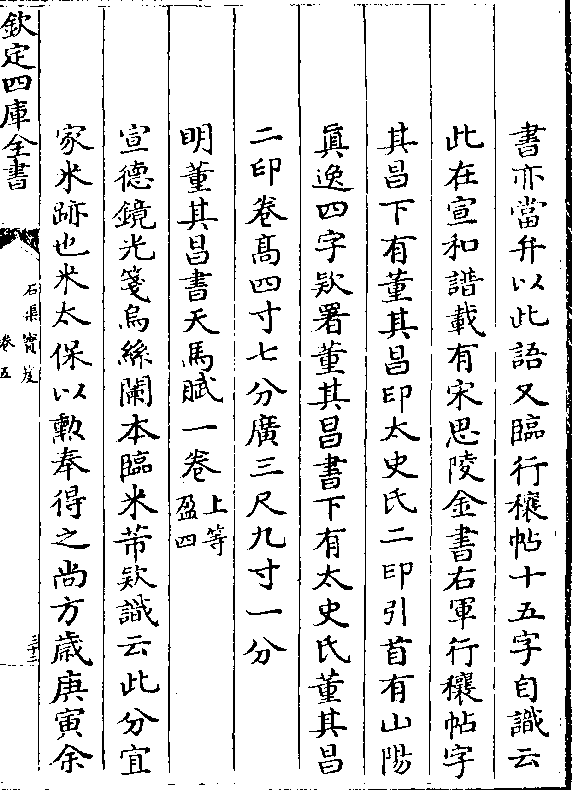 書亦當弁以此語又臨行穰帖十五字自識云
此在宣和譜載有宋思陵金書右軍行穰帖字
其昌下有董其昌印太史氏二印引首有山陽
眞逸四字欵署董其昌書下有太史氏董其昌
二印卷髙四寸七分廣三尺九寸一分
明董其昌書天馬賦一卷 上等 盈四
宣德鏡光箋烏絲闌本臨米芾欵識云此分宜
家米跡也米太保以勲奉得之尚方歳庚寅余
欽定四庫全書
石渠寳笈
卷五
三十二